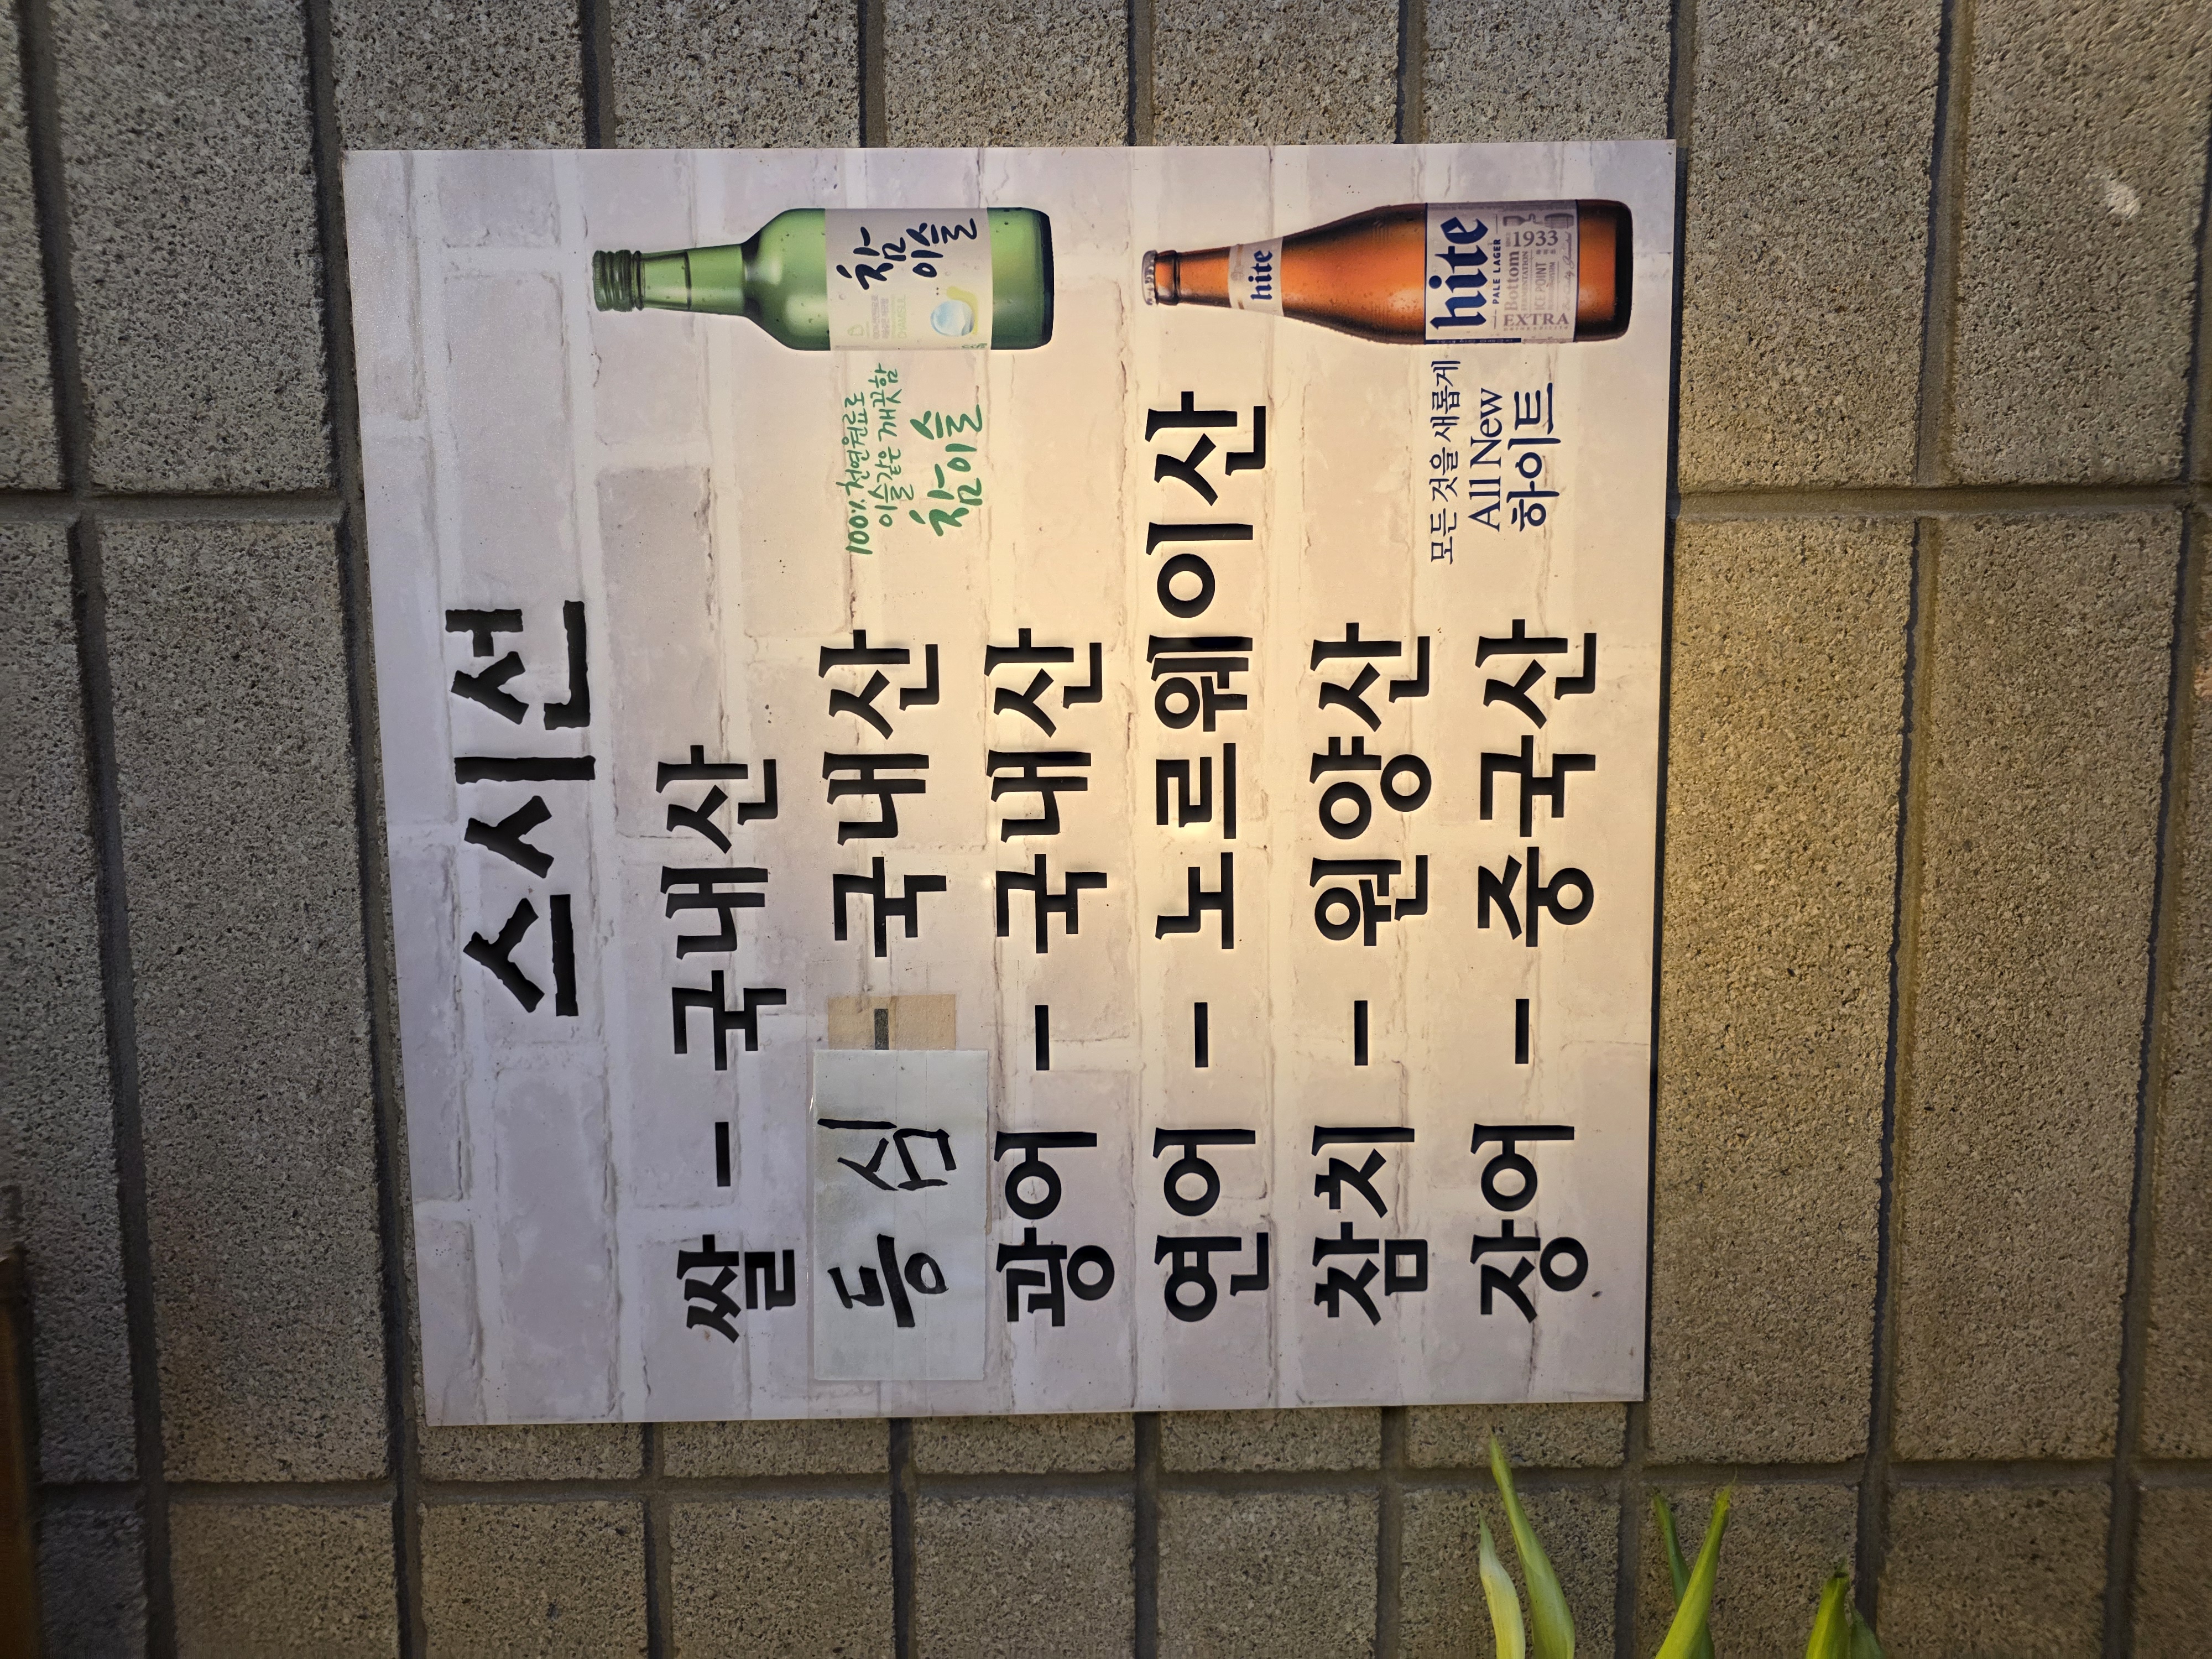 스시선
쌀 - 국내산
등심 - 국내산
광어 - 국내산
연어 - 노르웨이산
참치 - 원양산
장어 - 중국산
100% 천연원료로
이슬같은 깨끗함
참이슬
참
이슬
모든 것을 새롭게
All New
하이트
hite
hite
PALE LAGER
Bottom
1933
ICE POINT
EXTRA